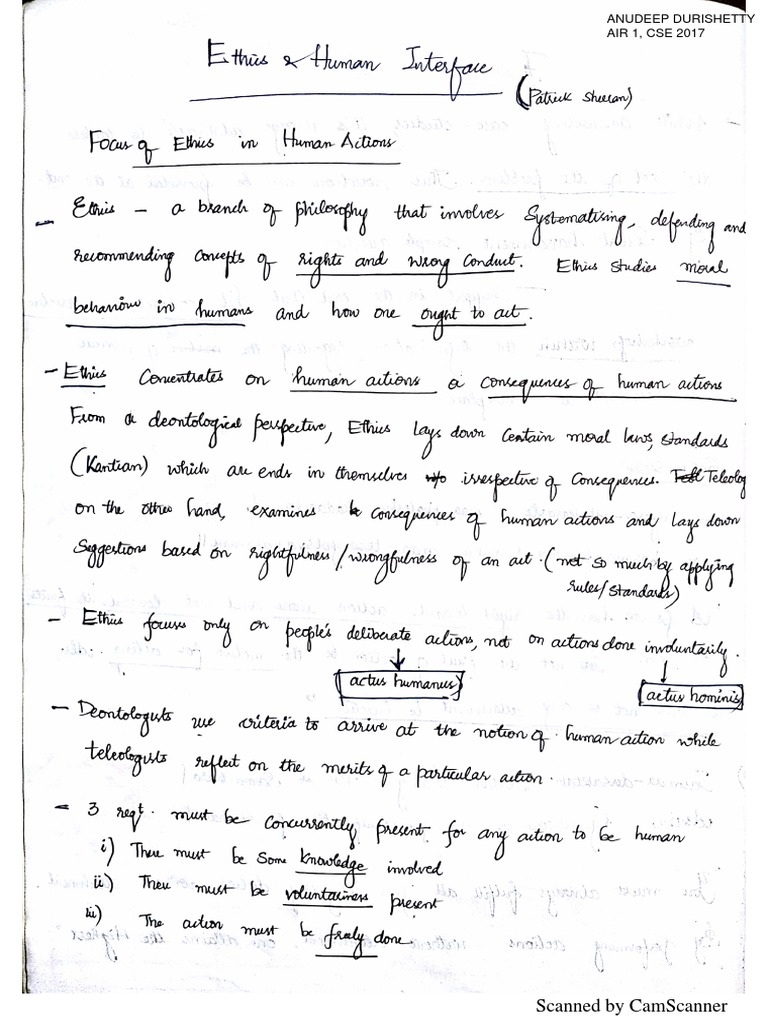 ANUDEEP DURISHETTY
AIR 1, CSE 2017
Ethics & Human Interface
(Patrick Sheeran)
Focus of Ethics in Human Actions
- Ethics - a branch of philosophy that involves Systematising, defending and
recommending concepts of rights and wrong conduct. Ethics studies moral
behaviour in humans and how one ought to act.
- Ethics Concentrates on human actions & consequences of human actions
From a deontological perspective, Ethics lays down certain moral laws, standards
(Kantian) which are ends in themselves w/o irrespective of Consequences. Teleolog
on the other hand, examines consequences of human actions and lays down
Suggestions based on rightfulness/wrongfulness of an act. (not so much by applying
rules/standards)
- Ethics focuses only on people's deliberate actions, not on actions done involuntarily.
actus humanus
actus hominis
- Deontologists use criteria to arrive at the notion of human action while
teleologists reflect on the merits of a particular action.
- 3 reqt. must be concurrently present for any action to be human
i) There must be some knowledge involved
ii) There must be voluntariness present
iii) The action must be freely done
Scanned by CamScanner